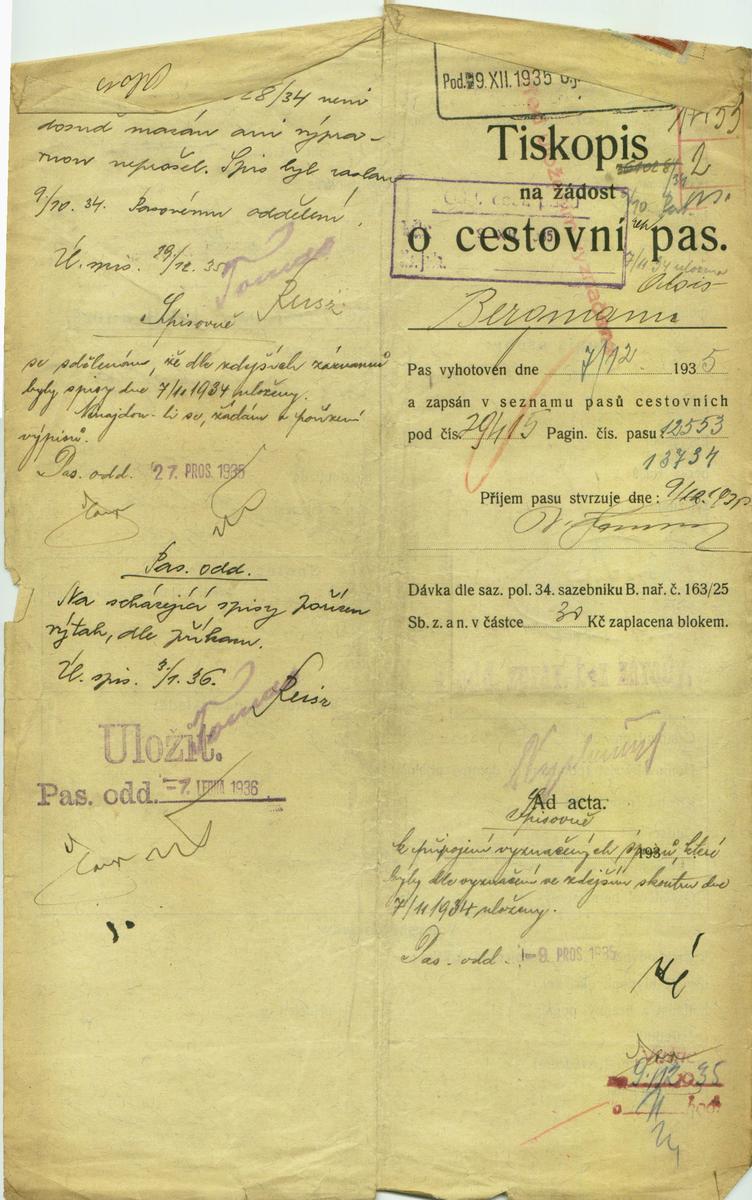 28/34 není
dosud
neprošel. Spis byl zaslán
9/10. 34. Pasovému oddělení.
Reisz
Spisovně
se sdělením, že dle zdejších záznamů
byly spisy dne 7/11 1934 uloženy.
Nenajdou-li se, žádám o pořízení
výpisů.
Pas. odd. 27. PROS. 1935
Pas. odd.
Na scházející spisy pořízen
výtah, dle příkazu.
Úl. spis. 3/1. 36. Reisz
Uložit.
Pas. odd. -7. LEDNA 1936
Pod. 9. XII. 1935
Tiskopis
na žádost
o cestovní pas.
Alois
Bergmann
Pas vyhotoven dne 7/12. 1935
a zapsán v seznamu pasů cestovních
pod čís. 29415 Pagin. čís. pasu 12553
13734
Příjem pasu stvrzuje dne: 9/12. 1935
Dávka dle saz. pol. 34. sazebníku B. nař. č. 163/25
Sb. z. a n. v částce 30 Kč zaplacena blokem.
Ad acta.
Spisovně
193
k připojení vyznačených spisů, které
byly dle vyznačení ve zdejším skontru dne
7/11 1934 uloženy.
Pas. odd. -9. PROS. 1935
9. 12. 1935
11 hod.